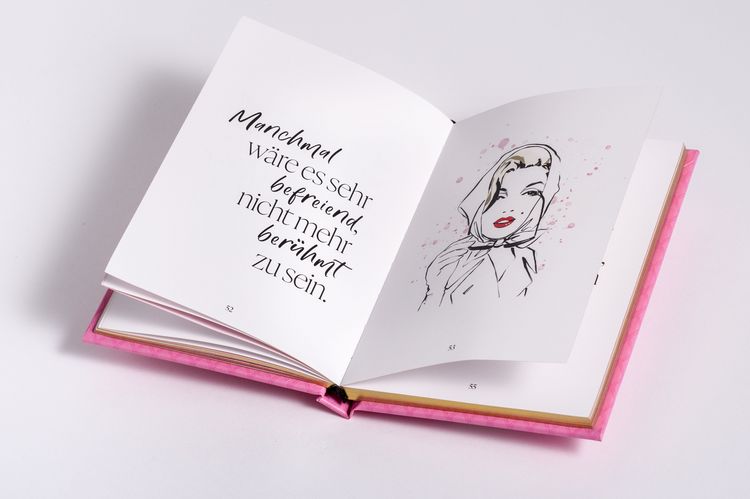 Manchmal
wäre es sehr
befreiend,
nicht mehr
berühmt
zu sein.
52
53
55